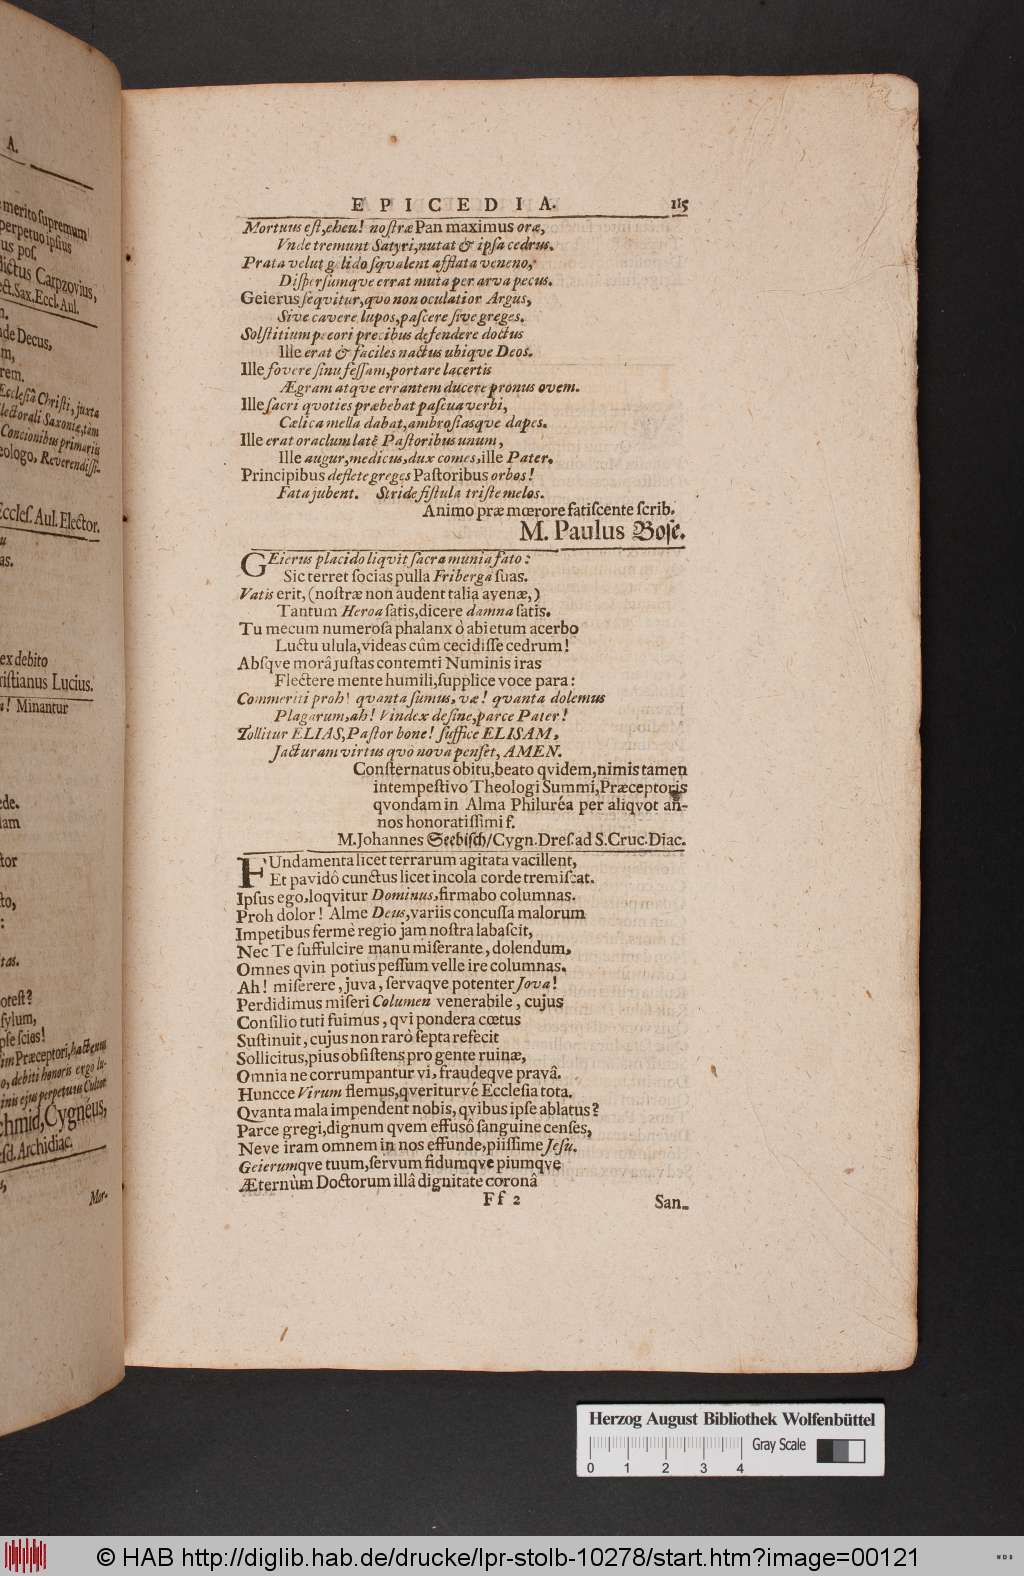 A.
merito supremum
perpetuo ipsius
us pos.
dictus Carpzovius,
ect. Sax. Eccl. Aul.
m.
nde Decus,
m,
rem.
Ecclesiâ Christi, juxta
lectorali Saxoniæ, tam
Concionibus primarii
eologo, Reverendissi-
Eccles. Aul. Elector.
u
as.
ex debito
ristianus Lucius.
Minantur
ede.
lam
tor
to,
:
tas.
otest?
sylum,
pse scies!
im Præceptori, hactenus
o, debiti honoris ergo lu-
inis ejus perpetuus Cultor
chmid, Cygnéus,
esd. Archidiac.
s,
Mor-
EPICEDIA. 115
Mortuus est, eheu! nostræ Pan maximus oræ,
Vnde tremunt Satyri, nutat & ipsa cedrus.
Prata velut gelido sqvalent afflata veneno,
Dispersumqve errat muta per arva pecus.
Geierus seqvitur, qvo non oculatior Argus,
Sive cavere lupos, pascere sive greges.
Solstitium pecori precibus defendere doctus
Ille erat & faciles nactus ubiqve Deos.
Ille fovere sinu fessam, portare lacertis
Ægram atqve errantem ducere pronus ovem.
Ille sacri qvoties præbebat pascua verbi,
Cælica mella dabat, ambrosiasqve dapes.
Ille erat oraclum latè Pastoribus unum,
Ille augur, medicus, dux comes, ille Pater.
Principibus deflete greges Pastoribus orbos!
Fata jubent. Stride fistula triste melos.
Animo præ mœrore fatiscente scrib.
M. Paulus Bose.
GEierus placido liqvit sacra munia fato:
Sic terret socias pulla Friberga suas.
Vatis erit, (nostræ non audent talia avenæ,)
Tantum Heroa satis, dicere damna satis.
Tu mecum numerosa phalanx ò abietum acerbo
Luctu ulula, videas cûm cecidisse cedrum!
Absqve morâ justas contemti Numinis iras
Flectere mente humili, supplice voce para:
Commeriti proh! qvanta sumus, væ! qvanta dolemus
Plagarum, ah! Vindex desine, parce Pater!
Tollitur ELIAS, Pastor bone! suffice ELISAM,
Jacturam virtus qvo nova penset, AMEN.
Consternatus obitu, beato qvidem, nimis tamen
intempestivo Theologi Summi, Præceptoris
qvondam in Alma Philuréa per aliqvot an-
nos honoratissimi f.
M. Johannes Seebisch/ Cygn. Dres. ad S. Cruc. Diac.
FUndamenta licet terrarum agitata vacillent,
Et pavidô cunctus licet incola corde tremiscat.
Ipsus ego, loqvitur Dominus, firmabo columnas.
Proh dolor! Alme Deus, variis concussa malorum
Impetibus fermè regio jam nostra labascit,
Nec Te suffulcire manu miserante, dolendum,
Omnes qvin potius pessum velle ire columnas.
Ah! miserere, juva, servaqve potenter Jova!
Perdidimus miseri Columen venerabile, cujus
Consilio tuti fuimus, qvi pondera cœtus
Sustinuit, cujus non rarò septa refecit
Sollicitus, pius obsistens pro gente ruinæ,
Omnia ne corrumpantur vi, fraudeqve pravâ.
Huncce Virum flemus, qveriturvé Ecclesia tota.
Qvanta mala impendent nobis, qvibus ipse ablatus?
Parce gregi, dignum qvem effusô sanguine censes,
Neve iram omnem in nos effunde, piissime Jesu.
Geierumqve tuum, servum fidumqve piumqve
Æternùm Doctorum illâ dignitate coronâ
Ff 2 San-
Herzog August Bibliothek Wolfenbüttel
Gray Scale
0 1 2 3 4
© HAB http://diglib.hab.de/drucke/lpr-stolb-10278/start.htm?image=00121